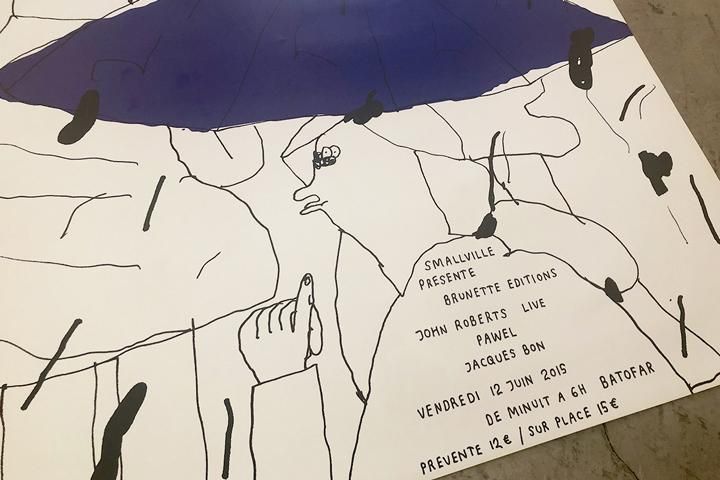 SMALLVILLE
PRESENTE
BRUNETTE EDITIONS
JOHN ROBERTS LIVE
PAWEL
JACQUES BON
VENDREDI 12 JUIN 2015
DE MINUIT A 6H BATOFAR
PREVENTE 12€ / SUR PLACE 15€